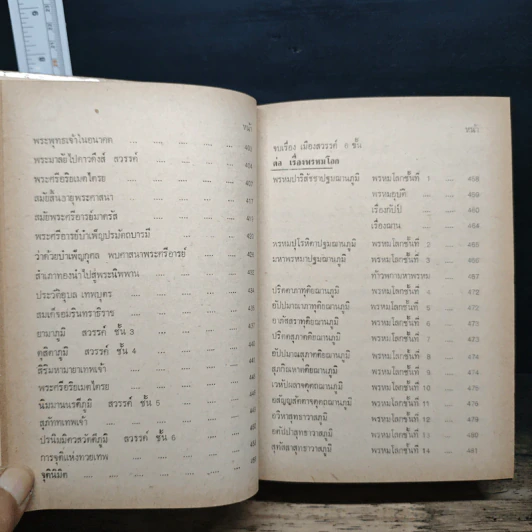 หน้า
พระพุทธเจ้าในอนาคต .... .... .... ....
พระมาลัยไปดาวดึงส์ สวรรค์ .... .... ....
พระศรีอริยเมตไตรย .... .... .... ....
สมัยสิ้นอายุพระศาสนา .... .... .... ....
สมัยพระศรีอารย์มาตรัส .... .... ....
พระศรีอารย์บำเพ็ญปรมัตถบารมี .... ....
ว่าด้วยบำเพ็ญกุศล พบศาสนาพระศรีอารย์ ....
สำเภาทองนำไปสู่พระนิพพาน .... ....
ประวัติอุบล เทพบุตร .... .... ....
สมเด็จอมรินทราธิราช .... .... ....
ยามาภูมิ สวรรค์ ชั้น 3 .... .... ....
ดุสิตาภูมิ สวรรค์ ชั้น 4 .... .... ....
สิริมหามายาเทพเจ้า .... .... ....
พระศรีอริยเมตไตรย .... .... ....
นิมมานนรดีภูมิ สวรรค์ ชั้น 5 .... ....
สุภัททเทพเจ้า .... .... .... ....
ปรนิมมิตวสวัตดีภูมิ สวรรค์ ชั้น 6 ....
การจุติแห่งทวยเทพ .... .... ....
จุตินิมิต .... .... .... .... ....
หน้า
จบเรื่อง เมืองสวรรค์ 6 ชั้น
ต่อ เรื่องพรหมโลก
พรหมปาริสัชชาปฐมฌานภูมิ พรหมโลกชั้นที่ 1 .... 458
พรหมยุบัติ .... 459
เรื่องกัปป์ .... 460
เรื่องฌาน .... 464
พรหมปุโรหิตาปฐมฌานภูมิ พรหมโลกชั้นที่ 2 .... 465
มหาพรหมาปฐมฌานภูมิ พรหมโลกชั้นที่ 3 .... 466
ท้าวพกามหาพรหม .... 467
ปริตตาภาทุติยฌานภูมิ พรหมโลกชั้นที่ 4 .... 472
อัปปมาณาภาทุติยฌานภูมิ พรหมโลกชั้นที่ 5
อาภัสสราทุติยฌานภูมิ พรหมโลกชั้นที่ 6 .... 473
ปริตตสุภาตติยฌานภูมิ พรหมโลกชั้นที่ 7
อัปปมาณสุภาตติยฌานภูมิ พรหมโลกชั้นที่ 8 .... 474
สุภกิณหาตติยฌานภูมิ พรหมโลกชั้นที่ 9
เวหัปผลาจตุตถฌานภูมิ พรหมโลกชั้นที่ 10 .... 476
อสัญญสัตตาจตุตถฌานภูมิ พรหมโลกชั้นที่ 11
อวิหาสุทธาวาสภูมิ พรหมโลกชั้นที่ 12 .... 479
อตัปปาสุทธาวาสภูมิ พรหมโลกชั้นที่ 13 .... 480
สุทัสสาสุทธาวาสภูมิ พรหมโลกชั้นที่ 14 .... 481